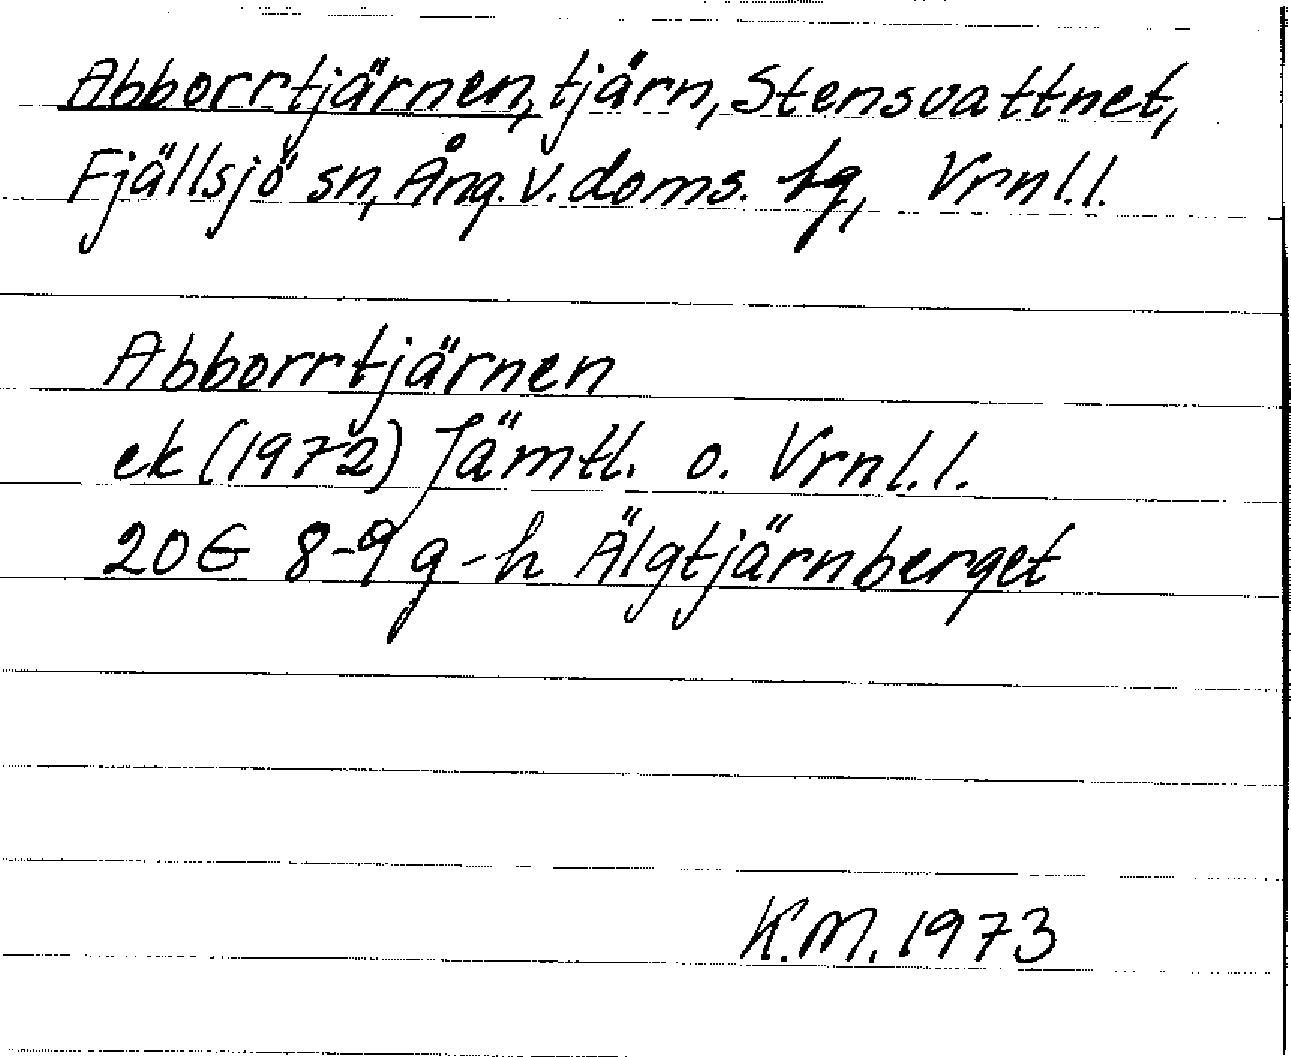 Abborrtjärnen, tjärn, Stensvattnet,
Fjällsjö sn, Ång. v. doms. tg, Vrnl.l.
Abborrtjärnen
ek (1972) Jämtl. o. Vrnl.l.
20G 8-9 g-h Älgtjärnberget
K.M. 1973